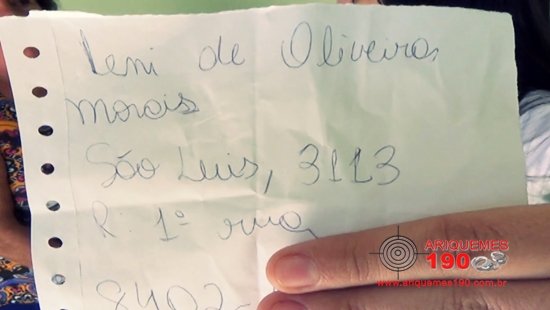 Leni de Oliveira
Morais
São Luis, 3113
R. 1º rua
8402-
ARIQUEMES
190
www.ariquemes190.com.br